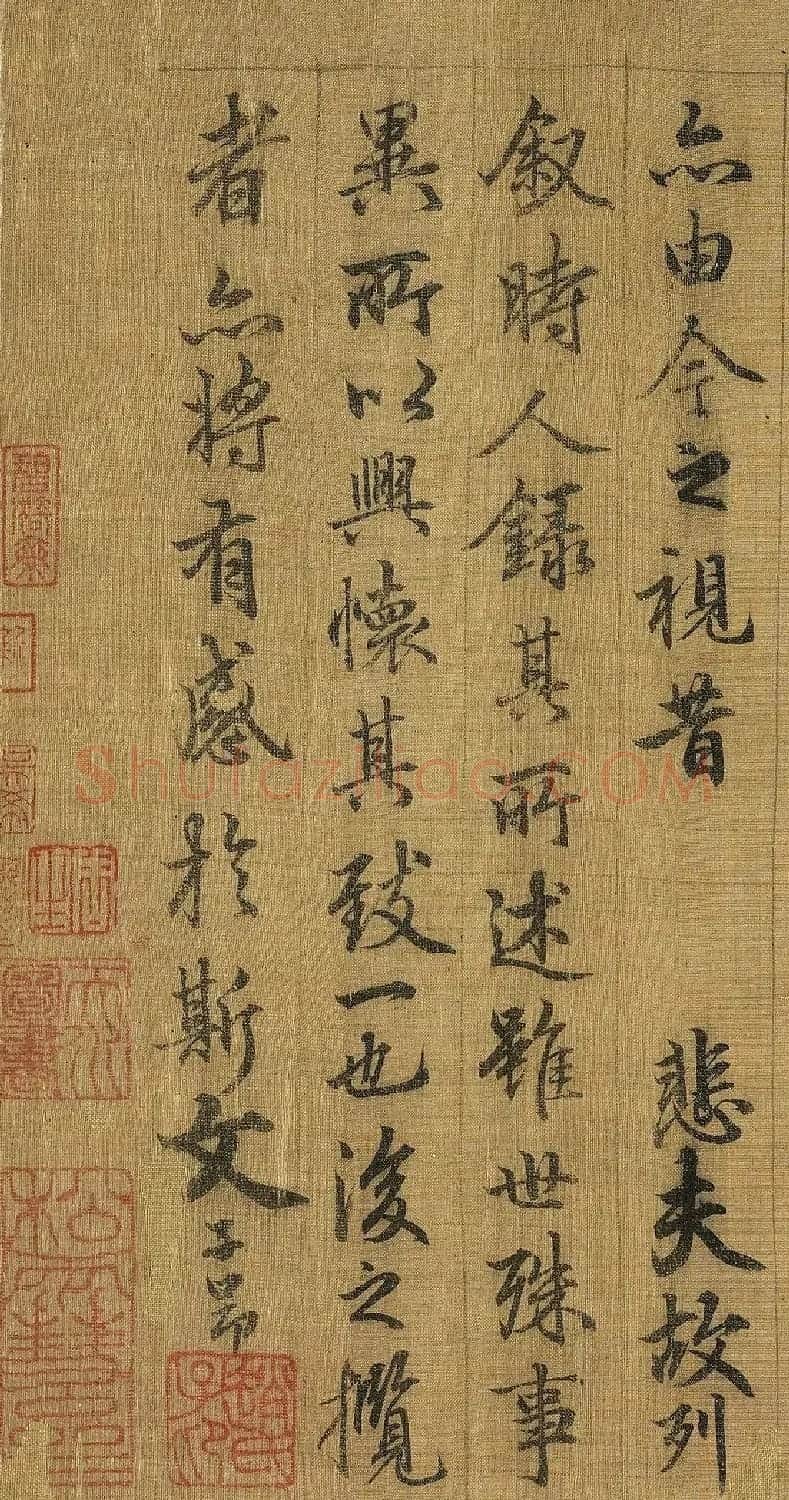 亦由今之視昔 悲夫故列
叙時人錄其所述雖世殊事
異所以興懷其致一也後之攬
者亦將有感於斯文 子昂
趙氏子昂